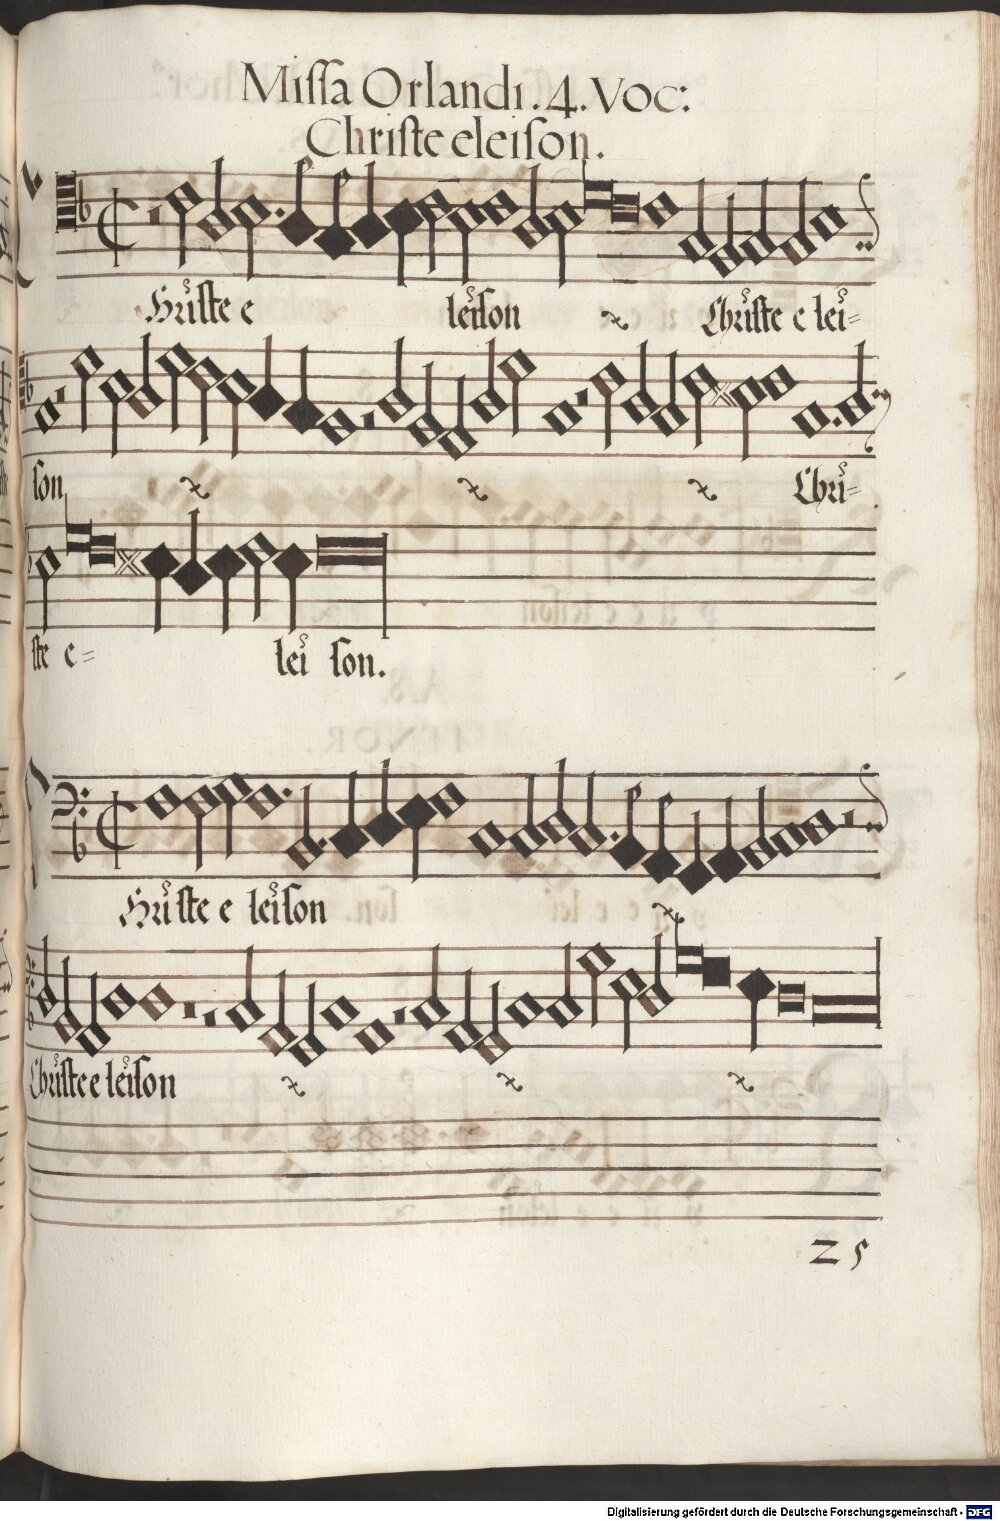 Missa Orlandi . 4 . Voc:
Christe eleison .
Christe e leison Christe e lei=
son Chri=
ste e= lei son.
Christe e leison
Christe e leison
25
Digitalisierung gefördert durch die Deutsche Forschungsgemeinschaft - DFG